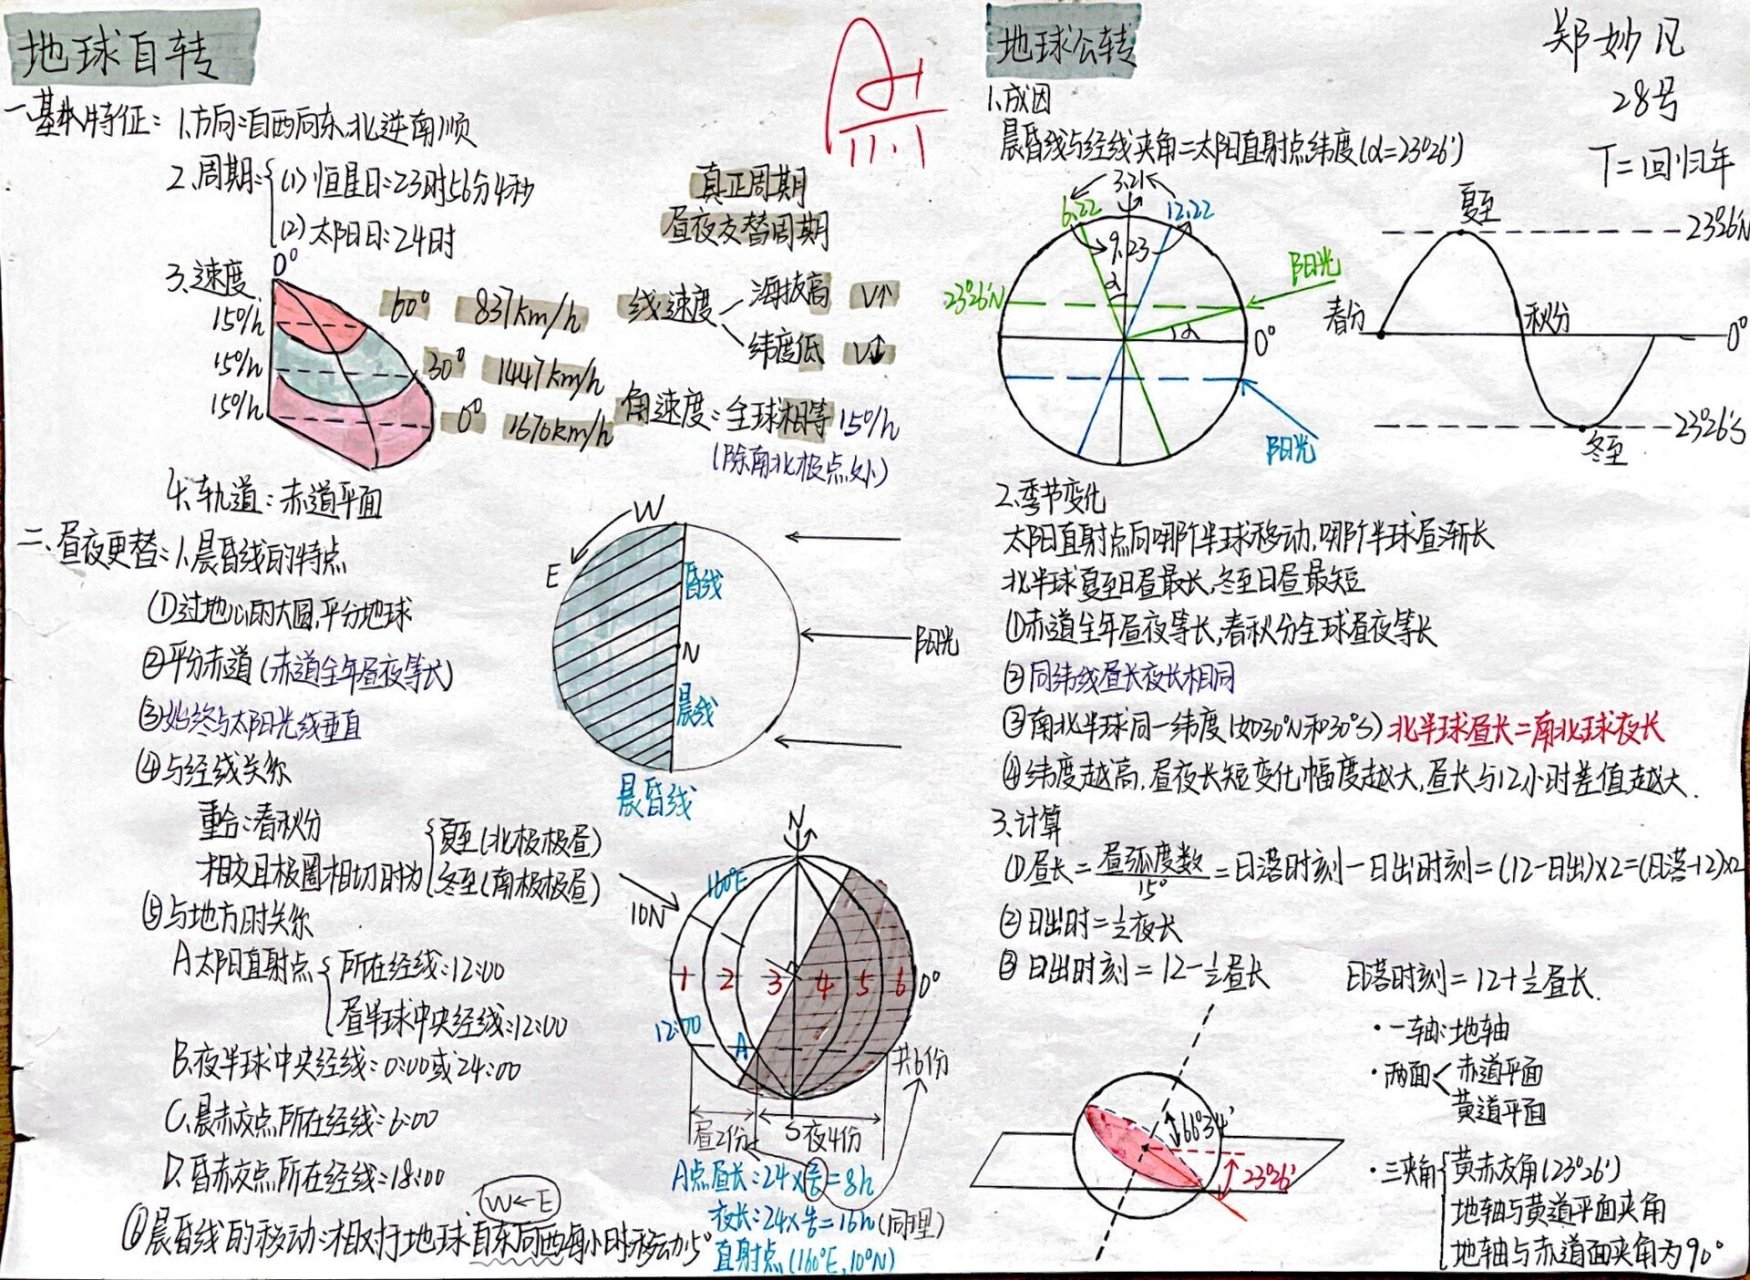 地球自转
一、基本特征：1.方向：自西向东，北逆南顺
2.周期：(1)恒星日：23时56分4秒 真正周期
(2)太阳日：24时 昼夜交替周期
3.速度
0°
15°/h 60° 837km/h
15°/h 30° 1447km/h
15°/h 0° 1670km/h
线速度 海拔高 V↑
纬度低 V↑
角速度：全球相等 15°/h
(除南北极点外)
4.轨道：赤道平面
二、昼夜更替：1.晨昏线的特点
①过地心的大圆，平分地球
②平分赤道(赤道全年昼夜等长)
③始终与太阳光线垂直
④与经线关系
重合：春秋分
相交且极圈相切时为 夏至(北极极昼)
冬至(南极极昼)
⑤与地方时关系
A.太阳直射点 所在经线：12:00
昼半球中央经线：12:00
B.夜半球中央经线：0:00或24:00
C.晨赤交点所在经线：6:00
D.昏赤交点所在经线：18:00
W←E
⑥晨昏线的移动：相对于地球自东向西每小时移动15°
W
E
昏线
N
晨线
阳光
晨昏线
N
160°E
10N
1 2 3 4 5 6 0°
12:00
A
共6份
昼2份 S 夜4份
A点昼长：24×2/6=8h
夜长：24×4/6=16h(同理)
直射点(160°E,10°N)
A+
11.1
地球公转
郑妙凡
28号
1.成因
晨昏线与经线夹角=太阳直射点纬度(α=23°26′)
T=回归年
3.21
6.22 12.22
9.23
α
23°26′N
阳光
α
0°
阳光
夏至
23°26′N
春分 秋分 0°
冬至
23°26′S
2.季节变化
太阳直射点向哪个半球移动，哪个半球昼渐长
北半球夏至日昼最长，冬至日昼最短
①赤道全年昼夜等长，春秋分全球昼夜等长
②同纬线昼长夜长相同
③南北半球同一纬度(如30°N和30°S)北半球昼长=南北球夜长
④纬度越高，昼夜长短变化幅度越大，昼长与12小时差值越大.
3.计算
①昼长=昼弧度数/15°=日落时刻-日出时刻=(12-日出)×2=(日落-12)×2
②日出时=½夜长
③日出时刻=12-½昼长 日落时刻=12+½昼长.
·一轴：地轴
·两面 赤道平面
黄道平面
66°34′
23°26′
·三夹角 黄赤交角(23°26′)
地轴与黄道平面夹角
地轴与赤道面夹角为90°